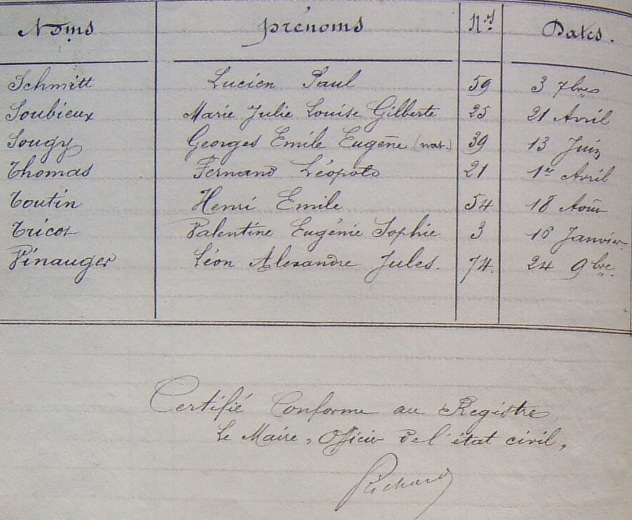 Noms Prénoms Nos Dates.
Schmitt Lucien Paul 59 3 7bre
Soubieux Marie Julie Louise Gilberte 25 21 Avril
Sougy Georges Emile Eugène 39 13 Juin
Thomas Fernand Léopold 21 1er Avril
Toutin Henri Emile 54 18 Août
Tricot Valentine Eugénie Sophie 3 16 Janvier.
Vinauger Léon Alexandre Jules. 74. 24 9bre.
Certifié Conforme au Registre
Le Maire, Officier de l'état civil,
Richard